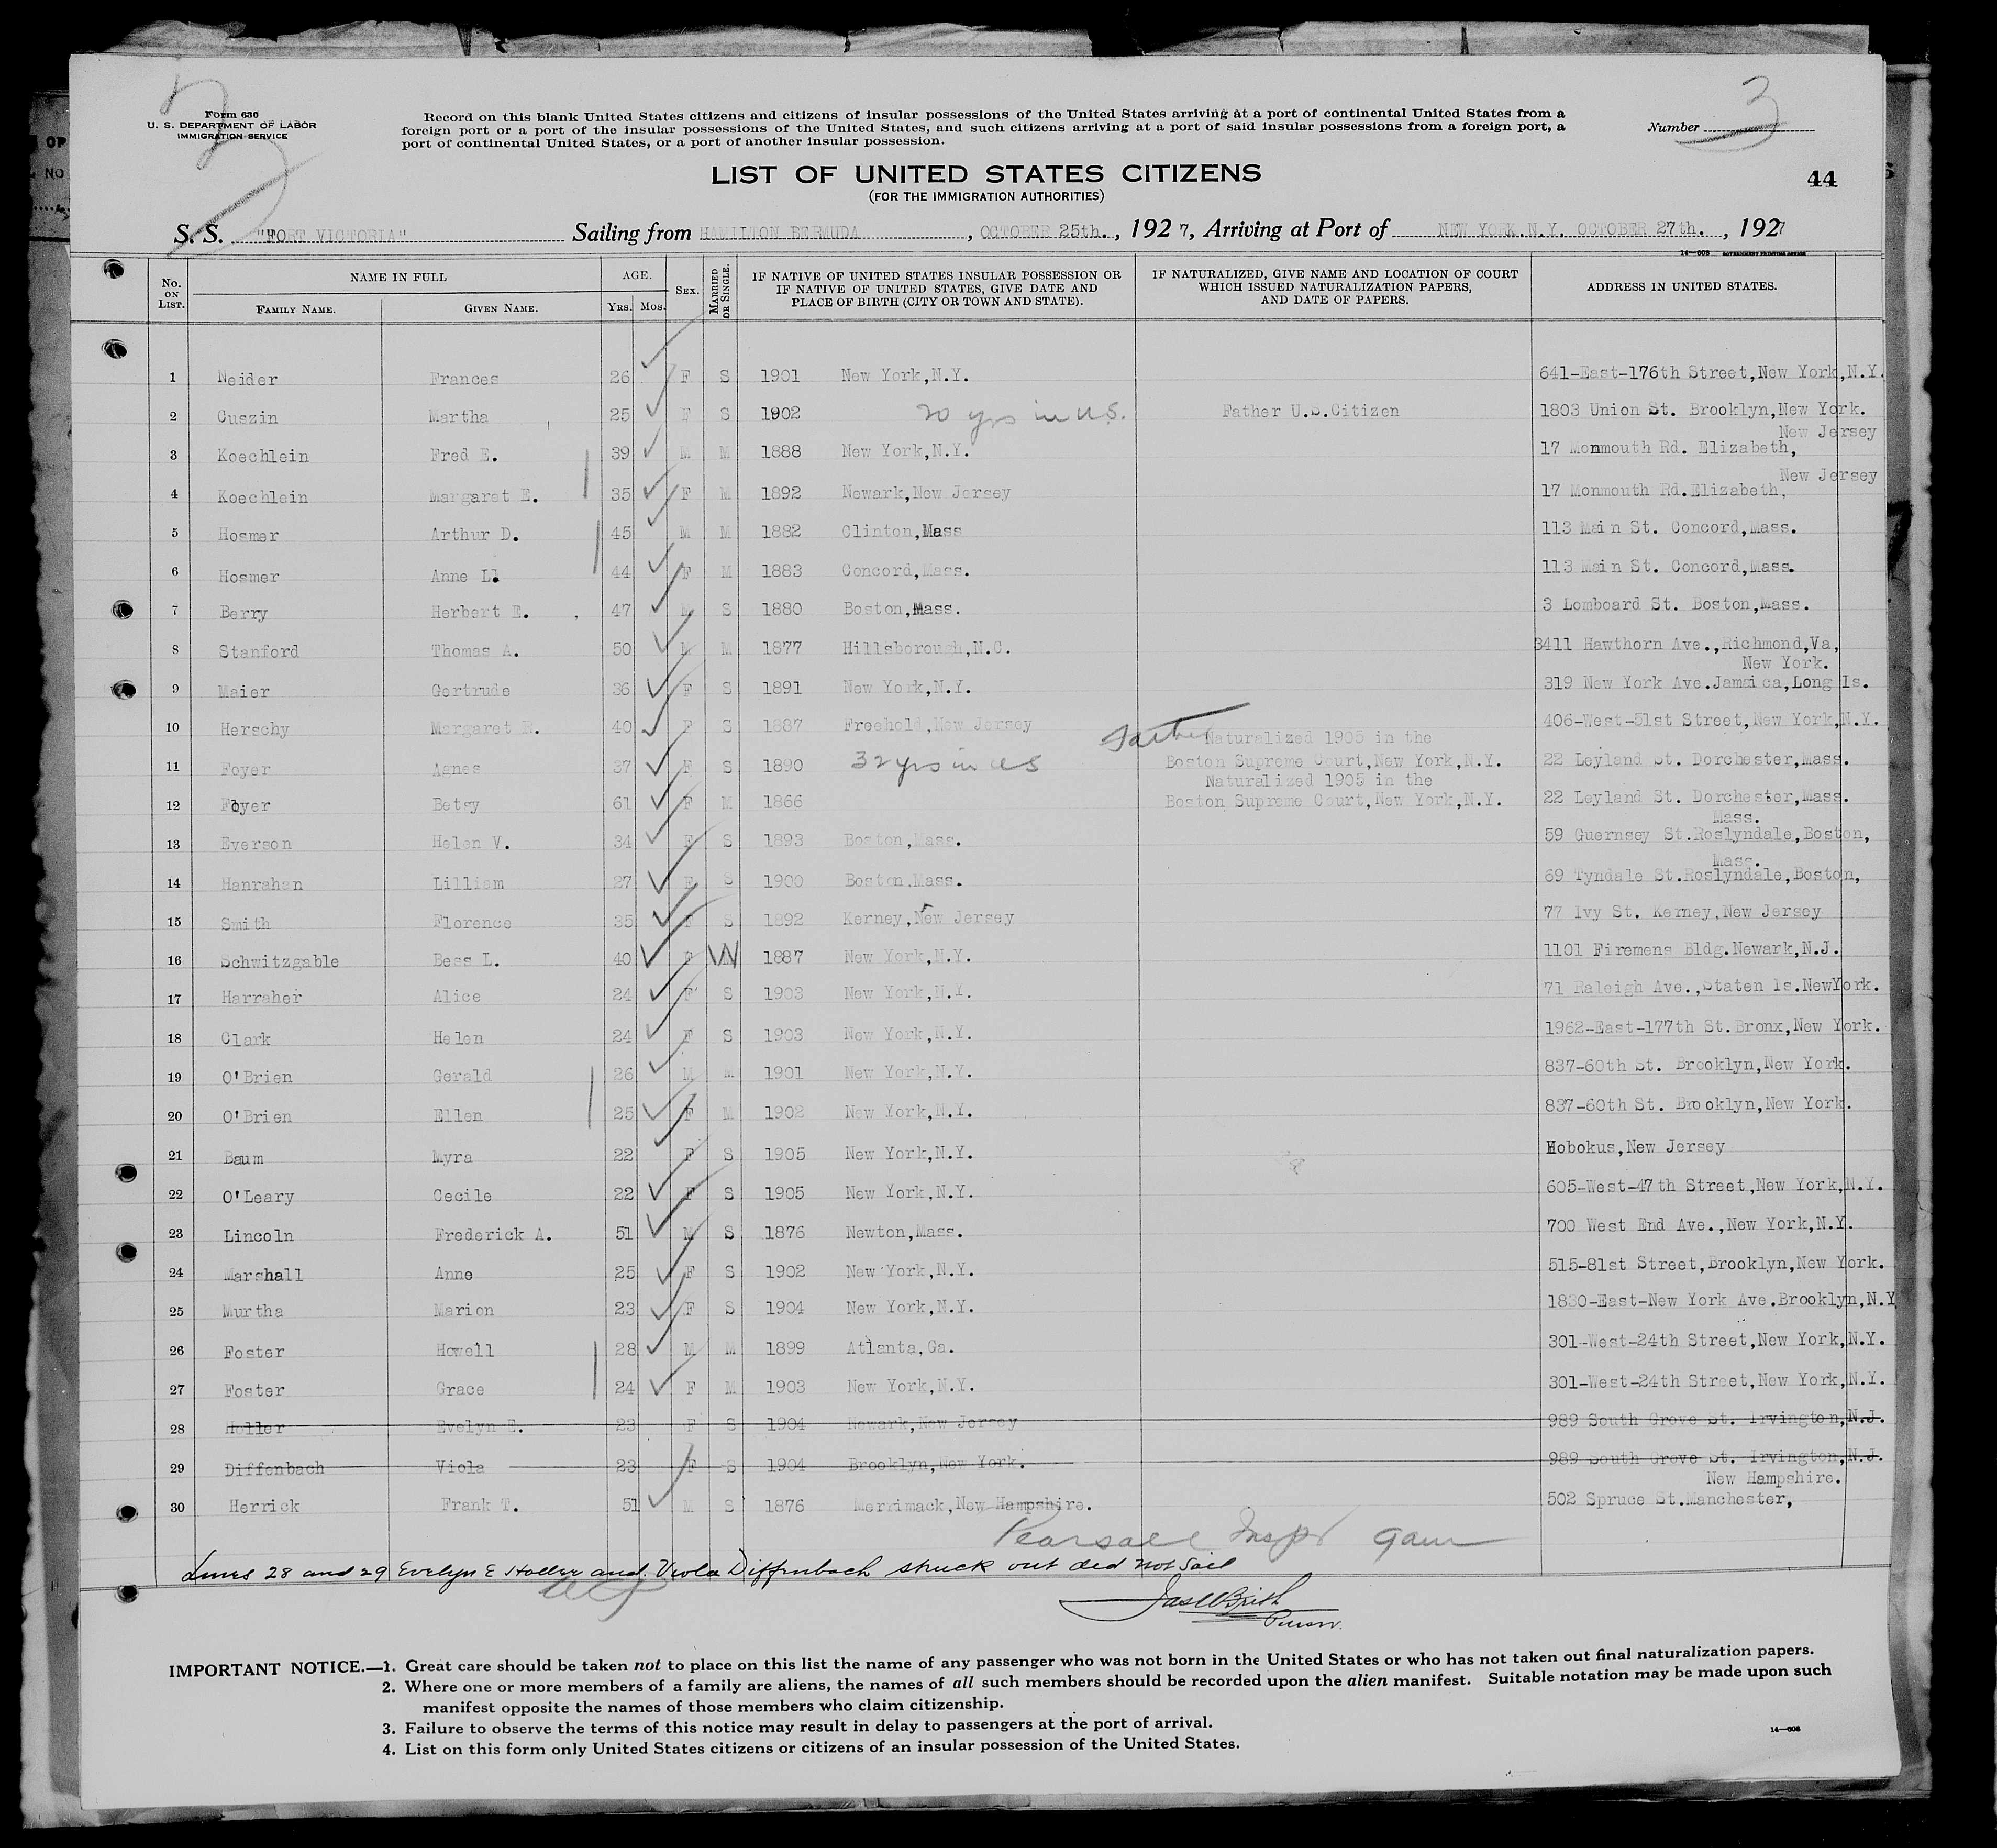 3
Form 630
U. S. DEPARTMENT OF LABOR
IMMIGRATION SERVICE
Record on this blank United States citizens and citizens of insular possessions of the United States arriving at a port of continental United States from a
foreign port or a port of the insular possessions of the United States, and such citizens arriving at a port of said insular possessions from a foreign port, a
port of continental United States, or a port of another insular possession.
Number 3
LIST OF UNITED STATES CITIZENS
(FOR THE IMMIGRATION AUTHORITIES)
44
S. S. "FORT VICTORIA" Sailing from HAMILTON BERMUDA, OCTOBER 25th., 1927, Arriving at Port of NEW YORK.N.Y. OCTOBER 27th., 1927
14—608 GOVERNMENT PRINTING OFFICE
No. ON LIST. NAME IN FULL FAMILY NAME. GIVEN NAME. AGE. YRS. MOS. SEX. MARRIED OR SINGLE. IF NATIVE OF UNITED STATES INSULAR POSSESSION OR IF NATIVE OF UNITED STATES, GIVE DATE AND PLACE OF BIRTH (CITY OR TOWN AND STATE). IF NATURALIZED, GIVE NAME AND LOCATION OF COURT WHICH ISSUED NATURALIZATION PAPERS, AND DATE OF PAPERS. ADDRESS IN UNITED STATES.
1 Neider Frances 26 F S 1901 New York,N.Y. 641-East-176th Street,New York,N.Y.
2 Cuszin Martha 25 F S 1902 20 yrs in U.S. Father U.S.Citizen 1803 Union St. Brooklyn,New York.
New Jersey
3 Koechlein Fred E. 39 M M 1888 New York,N.Y. 17 Monmouth Rd. Elizabeth,
New Jersey
4 Koechlein Margaret E. 35 F M 1892 Newark,New Jersey 17 Monmouth Rd.Elizabeth,
5 Hosmer Arthur D. 45 M M 1882 Clinton,Mass 113 Main St. Concord,Mass.
6 Hosmer Anne L. 44 F M 1883 Concord,Mass. 113 Main St. Concord,Mass.
7 Berry Herbert E. 47 M S 1880 Boston,Mass. 3 Lomboard St. Boston,Mass.
8 Stanford Thomas A. 50 M M 1877 Hillsborough,N.C. 3411 Hawthorn Ave.,Richmond,Va,
New York.
9 Maier Gertrude 36 F S 1891 New York,N.Y. 319 New York Ave.Jamaica,Long Is.
10 Herschy Margaret R. 40 F S 1887 Freehold,New Jersey 406-West-51st Street,New York,N.Y.
Father Naturalized 1905 in the
11 Foyer Agnes 37 F S 1890 32 yrs in US Boston Supreme Court,New York,N.Y. 22 Leyland St. Dorchester,Mass.
Naturalized 1905 in the
12 Foyer Betsy 61 F M 1866 Boston Supreme Court,New York,N.Y. 22 Leyland St. Dorchester,Mass.
Mass.
13 Everson Helen V. 34 F S 1893 Boston,Mass. 59 Guernsey St.Roslyndale,Boston,
Mass.
14 Hanrahan Lilliam 27 F S 1900 Boston.Mass. 69 Tyndale St.Roslyndale,Boston,
15 Smith Florence 35 F S 1892 Kerney,New Jersey 77 Ivy St. Kerney,New Jersey
16 Schwitzgable Bess L. 40 F W 1887 New York,N.Y. 1101 Firemens Bldg.Newark,N.J.
17 Harraher Alice 24 F S 1903 New York,N.Y. 71 Raleigh Ave.,Staten Is.NewYork.
18 Clark Helen 24 F S 1903 New York,N.Y. 1962-East-177th St.Bronx,New York.
19 O'Brien Gerald 26 M M 1901 New York,N.Y. 837-60th St. Brooklyn,New York.
20 O'Brien Ellen 25 F M 1902 New York,N.Y. 837-60th St. Brooklyn,New York.
21 Baum Myra 22 F S 1905 New York,N.Y. Hobokus,New Jersey
22 O'Leary Cecile 22 F S 1905 New York,N.Y. 605-West-47th Street,New York,N.Y.
23 Lincoln Frederick A. 51 M S 1876 Newton,Mass. 700 West End Ave.,New York,N.Y.
24 Marshall Anne 25 F S 1902 New York,N.Y. 515-81st Street,Brooklyn,New York.
25 Murtha Marion 23 F S 1904 New York,N.Y. 1830-East-New York Ave.Brooklyn,N.Y
26 Foster Howell 28 M M 1899 Atlanta,Ga. 301-West-24th Street,New York,N.Y.
27 Foster Grace 24 F M 1903 New York,N.Y. 301-West-24th Street,New York,N.Y.
28 Holler Evelyn E. 23 F S 1904 Newark,New Jersey 989 South Grove St. Irvington,N.J.
29 Diffenbach Viola 23 F S 1904 Brooklyn,New York. 989 South Grove St. Irvington,N.J.
New Hampshire.
30 Herrick Frank T. 51 M S 1876 Merrimack,New Hampshire. 502 Spruce St.Manchester,
Pearsall Inspr
Lines 28 and 29 Evelyn E Holler and Viola Diffenbach struck out did not sail
Purser.
IMPORTANT NOTICE.—1. Great care should be taken not to place on this list the name of any passenger who was not born in the United States or who has not taken out final naturalization papers.
2. Where one or more members of a family are aliens, the names of all such members should be recorded upon the alien manifest. Suitable notation may be made upon such
manifest opposite the names of those members who claim citizenship.
3. Failure to observe the terms of this notice may result in delay to passengers at the port of arrival.
4. List on this form only United States citizens or citizens of an insular possession of the United States.
14—608